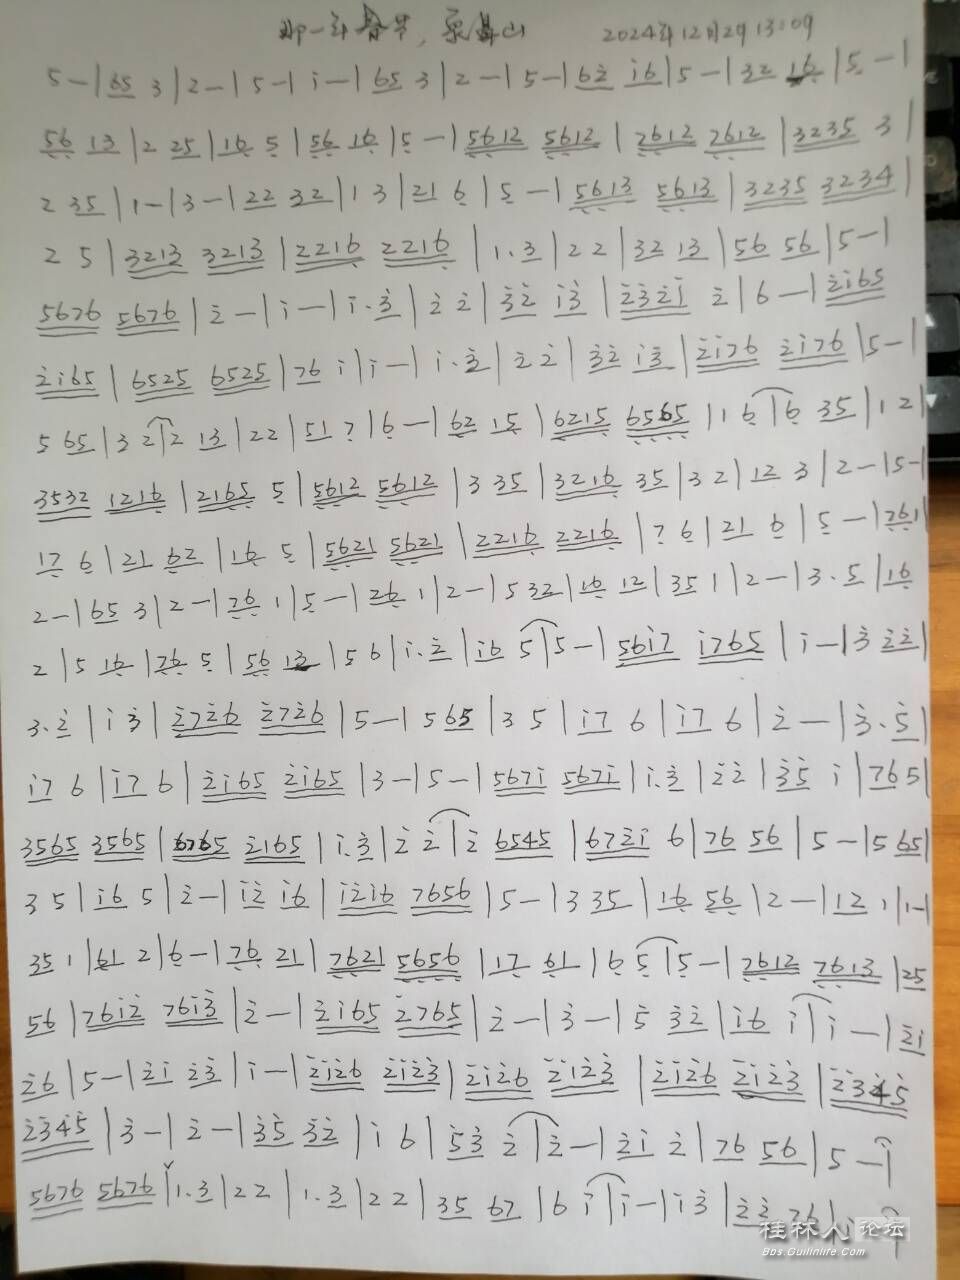 那一年春节，象鼻山 2024年12月29 13:09
5 - | 65 3 | 2 - | 5 - | i - | 65 3 | 2 - | 5 - | 62 i6 | 5 - | 32 16 | 5 - |
56 13 | 2 25 | 16 5 | 56 16 | 5 - | 5612 5612 | 7612 7612 | 3235 3 |
2 35 | 1 - | 3 - | 22 32 | 1 3 | 21 6 | 5 - | 5613 5613 | 3235 3234 |
2 5 | 3213 3213 | 2216 2216 | 1. 3 | 2 2 | 32 13 | 56 56 | 5 - |
5676 5676 | 2 - | i - | i. 3 | 2 2 | 32 i3 | 232i 2 | 6 - | 2i65
2i65 | 6525 6525 | 76 i | i - | i. 3 | 2 2 | 32 i3 | 2i76 2i76 | 5 - |
5 65 | 3 2 | 2 13 | 2 2 | 51 7 | 6 - | 62 15 | 6215 6565 | 1 6 | 6 35 | 1 2 |
3532 1216 | 2165 5 | 5612 5612 | 3 35 | 3216 35 | 3 2 | 12 3 | 2 - | 5 - |
17 6 | 21 62 | 16 5 | 5621 5621 | 2216 2216 | 7 6 | 21 6 | 5 - | 761 |
2 - | 65 3 | 2 - | 76 1 | 5 - | 26 1 | 2 - | 5 32 | 16 12 | 35 1 | 2 - | 3. 5 | 16
2 | 5 16 | 76 5 | 56 13 | 5 6 | i. 2 | i6 5 | 5 - | 56i7 i765 | i - | 3 22 |
3. 2 | i 3 | 2726 2726 | 5 - | 5 65 | 3 5 | i7 6 | i7 6 | 2 - | 3. 5 |
i7 6 | i7 6 | 2i65 2i65 | 3 - | 5 - | 567i 567i | i. 3 | 2 2 | 35 i | 76 5 |
3565 3565 | 6765 2165 | i. 3 | 2 2 | 2 6545 | 672i 6 | 76 56 | 5 - | 5 65 |
3 5 | i6 5 | 2 - | i2 i6 | i2i6 7656 | 5 - | 3 35 | 16 56 | 2 - | 12 1 | 1 - |
35 1 | 61 2 | 6 - | 76 21 | 7621 5656 | 17 61 | 6 5 | 5 - | 7612 7613 | 25
56 | 76i2 76i3 | 2 - | 2i65 2765 | 2 - | 3 - | 5 32 | i6 i | i - | 2i
26 | 5 - | 2i 23 | i - | 2i26 2i23 | 2i26 2i23 | 2i26 2i23 | 2345
2345 | 3 - | 2 - | 35 32 | i 6 | 53 2 | 2 - | 2i 2 | 76 56 | 5 - |
5676 5676 | 1. 3 | 2 2 | 1. 3 | 2 2 | 35 67 | 6 i | i - | i 3 | 22 76 | i - |
桂林人论坛
Bbs.Guilinlife.Com